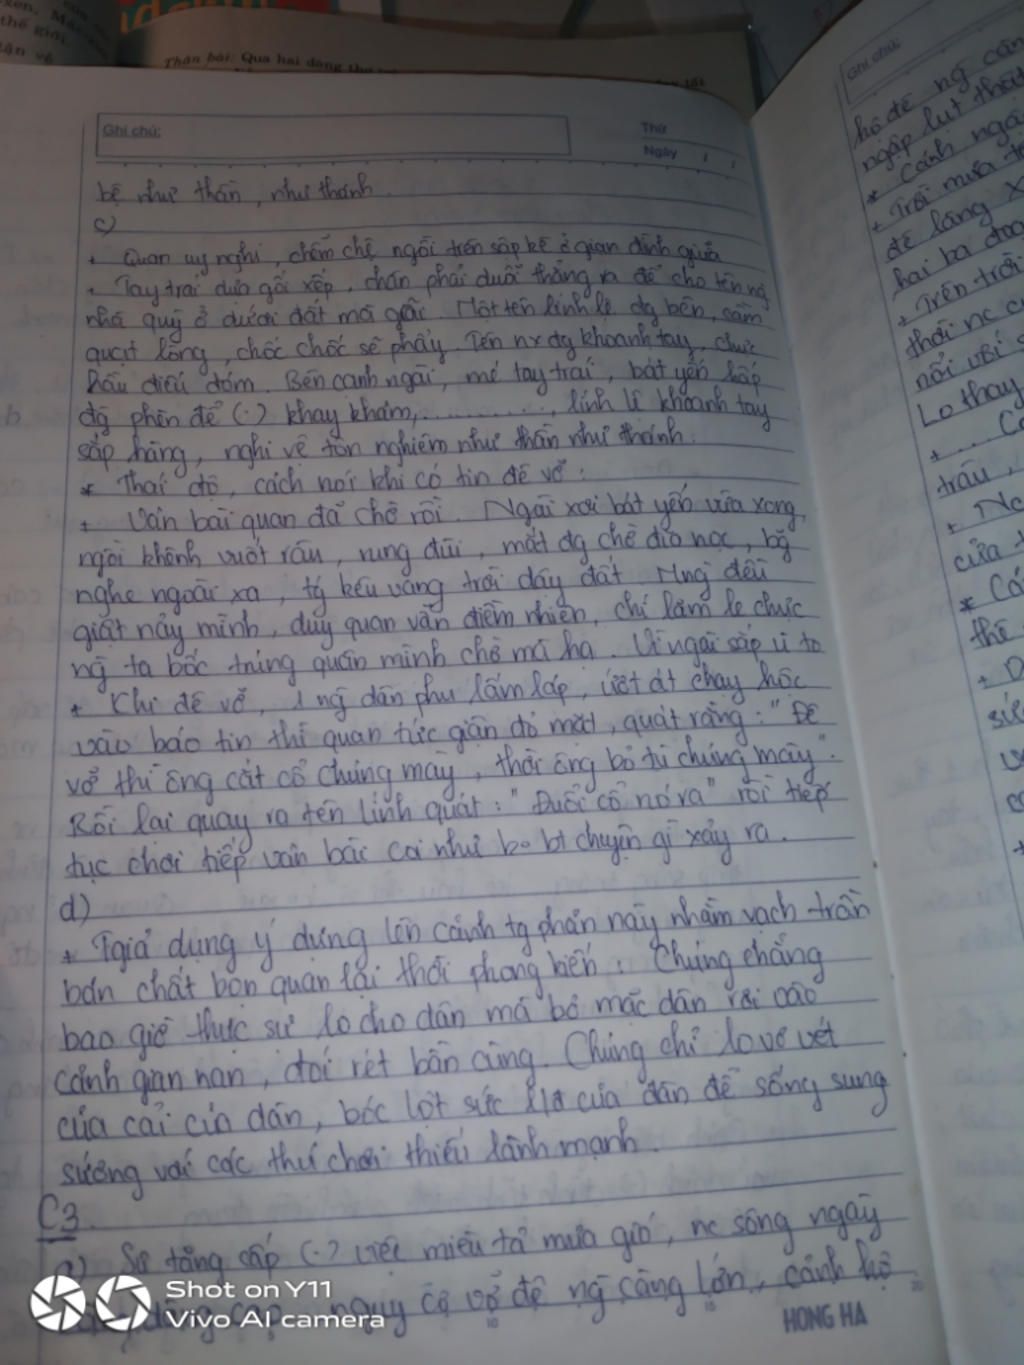 Thân bài: Qua hai dòng thơ
thế giới
Ghi chú:
Thứ
Ngày / /
bệ như thần, như thánh.
c)
+ Quan uy nghi, chễm chệ ngồi trên sập kê ở gian đình giữa
+ Tay trái dựa gối xếp, chân phải duỗi thẳng ra để cho tên ng
nhà quỳ ở dưới đất mà gãi. Một tên lính lệ đg bên, cầm
quạt lông, chốc chốc sẽ phẩy. Tên nx đg khoanh tay, chực
hầu điếu đóm. Bên cạnh ngài, mé tay trái, bát yến hấp
đg phèn để (.) khay khảm, .........., lính lệ khoanh tay
sắp hàng, nghi vệ tôn nghiêm như thần như thánh.
* Thái độ, cách nói khi có tin đê vỡ:
+ Ván bài quan đã chờ rồi. Ngài xơi bát yến vừa xong,
ngồi khểnh vuốt râu, rung đùi, mắt đg chờ đĩa nọc, bỗg
nghe ngoài xa, tg kêu vang trời dậy đất. Mng đều
giật nảy mình, duy quan vẫn điềm nhiên, chỉ lăm le chực
ng ta bốc trúng quân mình chờ mà hạ. Vì ngài sắp ù to
+ Khi đê vỡ, 1 ng dân phu lấm láp, ướt át chạy hộc
vào báo tin thì quan tức giận đỏ mặt, quát rằng: "Đê
vỡ thì ông cắt cổ chúng mày, thời ông bỏ tù chúng mày".
Rồi lại quay ra tên lính quát: "Đuổi cổ nó ra" rồi tiếp
tục chơi tiếp ván bài coi như ko bt chuyện gì xảy ra.
d)
+ Tgiả dụng ý dựng lên cảnh tg phản này nhằm vạch trần
bản chất bọn quan lại thời phong kiến: Chúng chẳng
bao giờ thực sự lo cho dân mà bỏ mặc dân rơi vào
cảnh gian nan, đói rét bần cùng. Chúng chỉ lo vơ vét
của cải của dân, bóc lột sức lđ của dân để sống sung
sướng với các thú chơi thiếu lành mạnh.
C3.
a) Sự tăng cấp (.) việc miêu tả mưa gió, nc sông ngày
nguy cơ vỡ đê ng càng lớn, cảnh hộ
HONG HA
Ghi chú:
hộ đê ng càn
ngập lụt thời
* Cảnh ngoài
+ Trời mưa
đê làng X
hai ba đoạ
+ Trên trời
thời nc c
nổi với
Lo thay
+ ....
trâu,
+ Nc
của
thế
Shot on Y11
Vivo AI camera